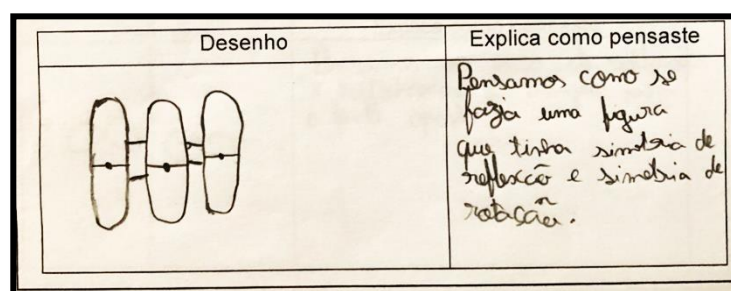 Desenho
Explica como pensaste
Pensamos como se
fazia uma figura
que tinha simetria de
reflexão e simetria de
rotação.